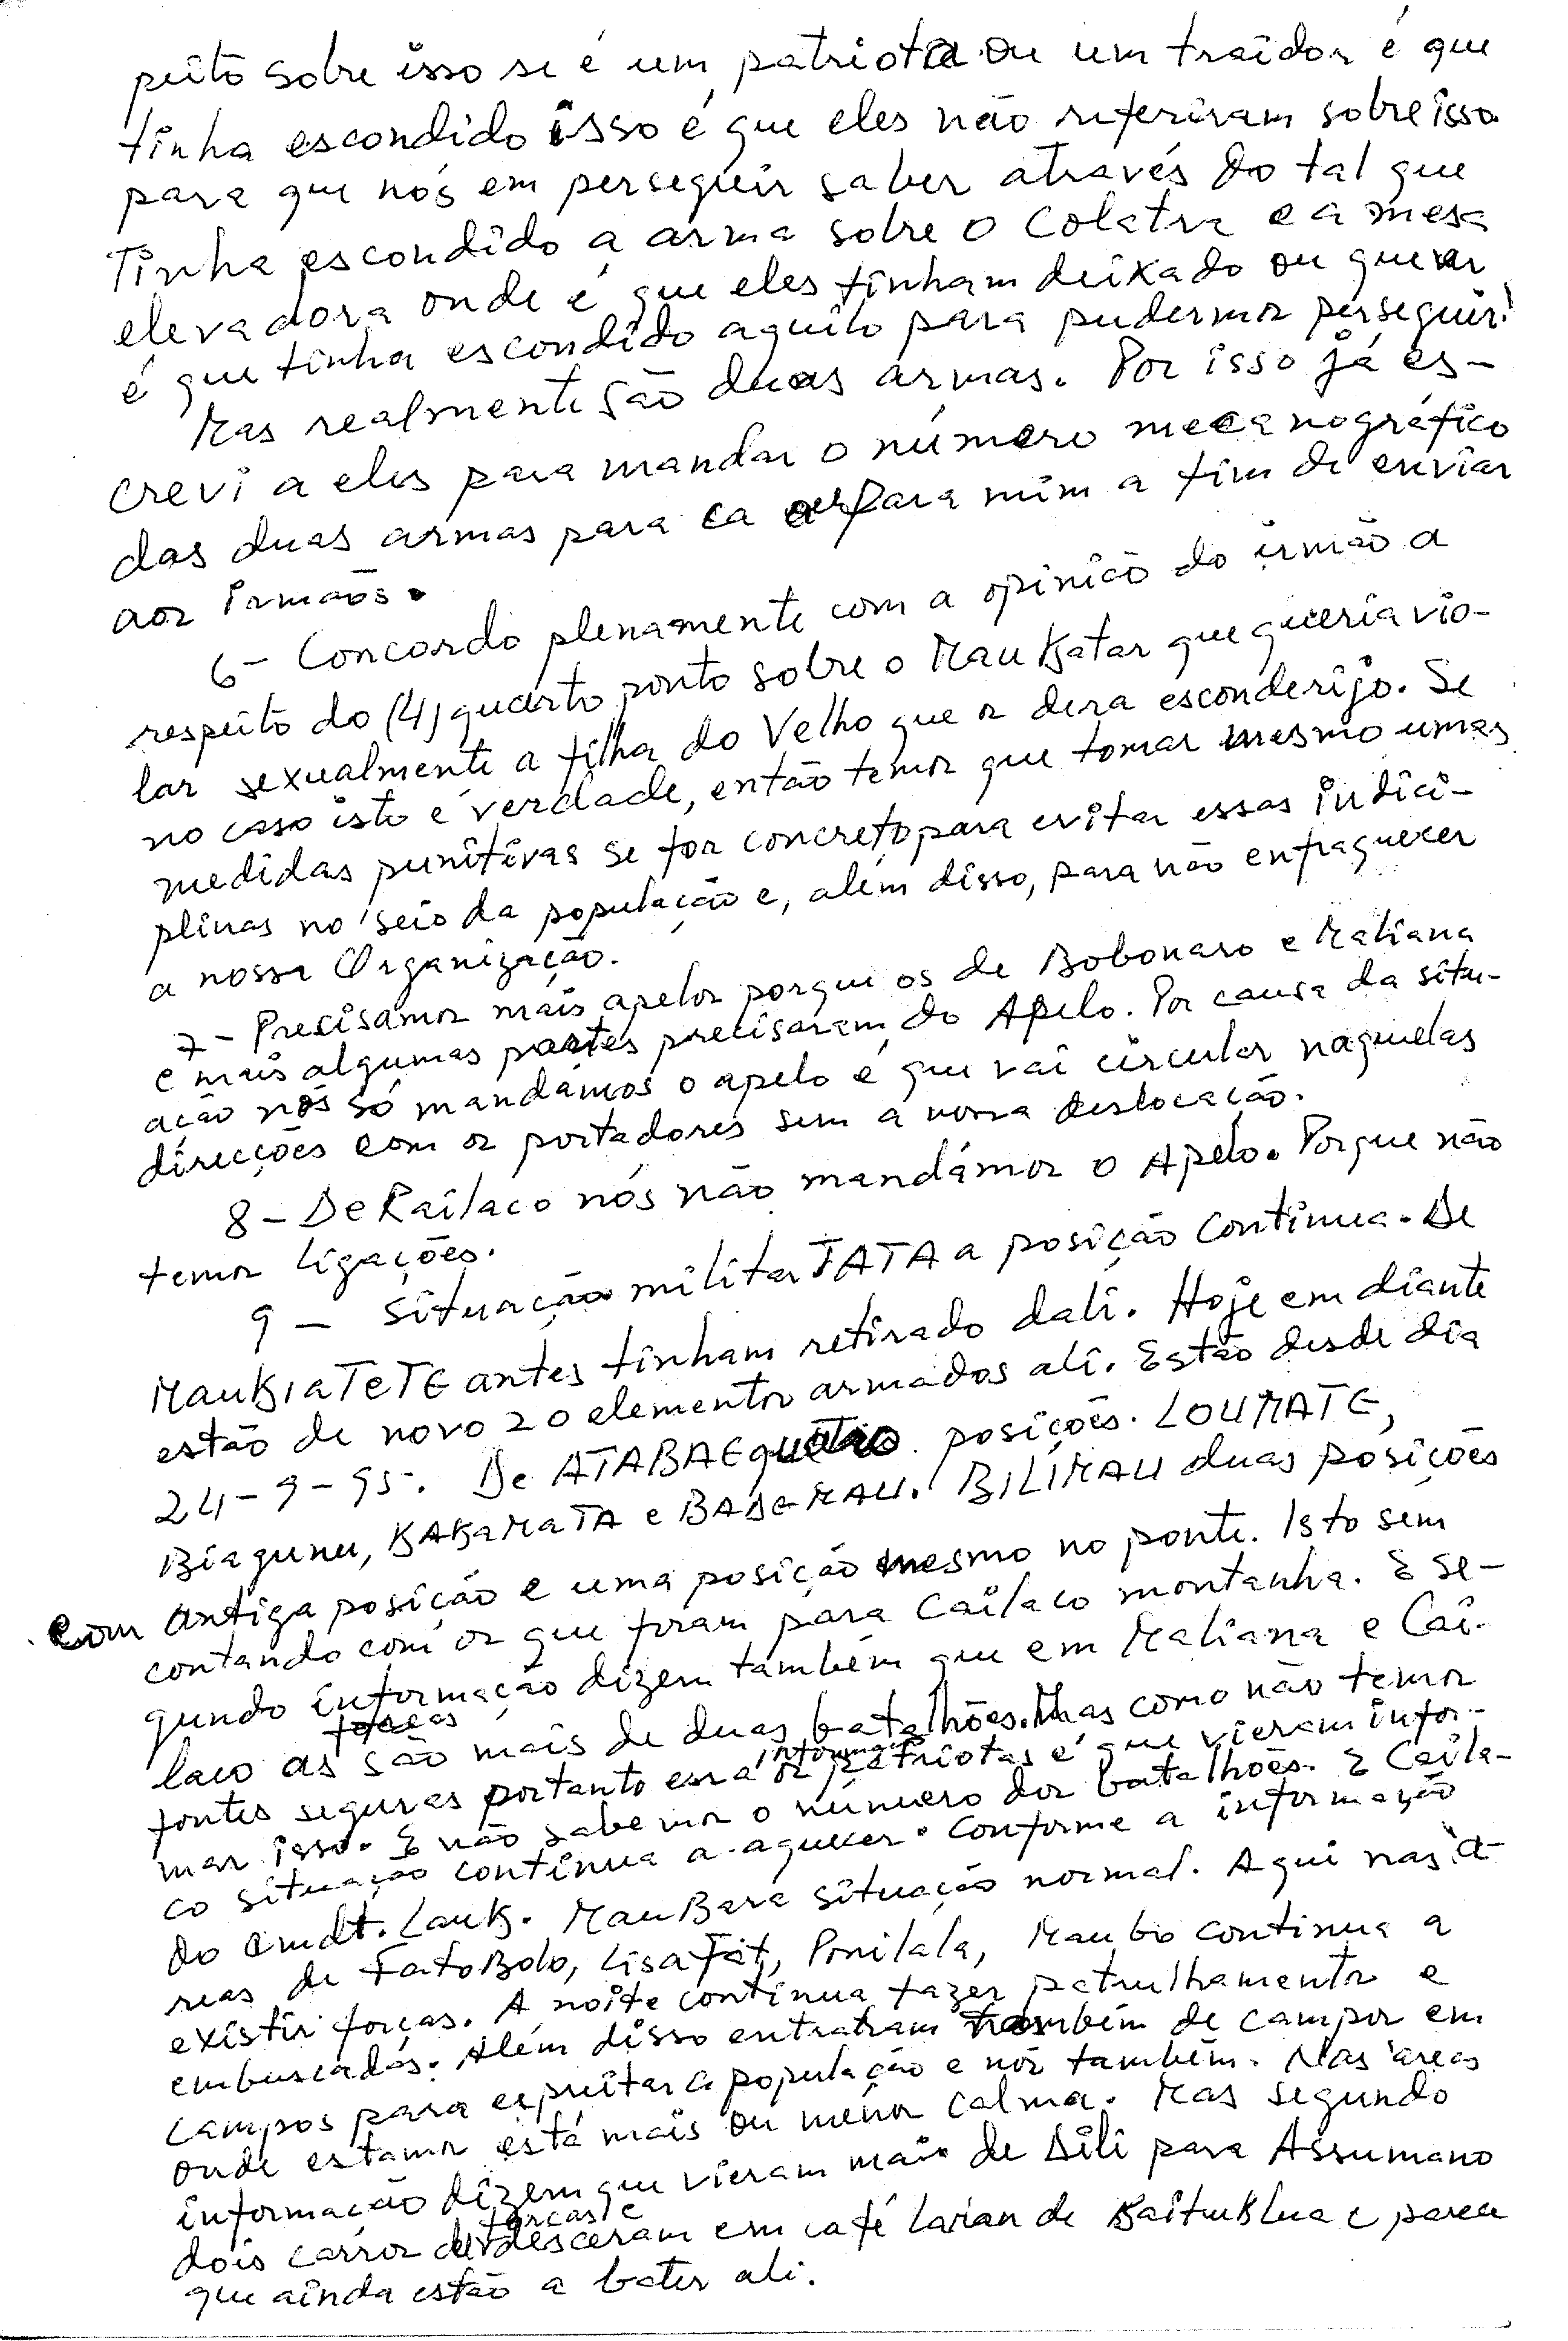 peito sobre isso se é um patriota ou um traidor é que
tinha escondido isso é que eles não referiram sobre isso
para que nós em perseguir saber através do tal que
Tinha escondido a arma sobre o Colatra e a mesa
elevadora onde é que eles tinham deixado ou quem
é que tinha escondido aquilo para pudermos perseguir!
Mas realmente são duas armas. Por isso já es-
crevi a eles para mandar o número mecanográfico
das duas armas para ca para mim a fim de enviar
aos irmãos.
6- Concordo plenamente com a opinião do irmão a
respeito do (4) quarto ponto sobre o MauKatar que queria vio-
lar sexualmente a filha do Velho que os dera esconderijo. Se
no caso isto é verdade, então temos que tomar mesmo umas
medidas punitivas se for concreto para evitar essas indici-
plinas no seio da população e, além disso, para não enfraquecer
a nossa Organização.
7- Precisamos mais apelos porque os de Bobonaro e Maliana
e mais algumas partes precisaram do Apelo. Por causa da situ-
ação nós só mandámos o apelo é que vai circular naquelas
direcções com os portadores sem a nossa deslocação.
8- De Railaco nós não mandámos o Apelo. Porque não
temos ligações.
9- Situação militar TATA a posição continua. De
MauKiaTeTE antes tinham retirado dali. Hoje em diante
estão de novo 20 elementos armados ali. Estão desde dia
24-9-95. De ATABAE quatro posições. LOUMATE,
Biagunu, KAKaMaTA e BADEMAU. BILIMAU duas posições
com antiga posição e uma posição mesmo no ponte. Isto sem
contando com os que foram para Cailaco montanha. E se-
gundo informação dizem também que em Maliana e Cai-
laco as forças são mais de duas batalhões. Mas como não temos
fontes seguras portanto essa informação os patriotas é que vieram infor-
mar isso. E não sabemos o número dos batalhões. E Caila-
co situação continua a aquecer. Conforme a informação
do cmdt. LauK. MauBara situação normal. Aqui nas á-
reas de FatoBolo, LisaFat, Ponilala, Maubo continua a
existir forças. A noite continua fazer patrulhamentos e
embuscadas. Além disso entraram também de campos em
campos para espreitar a população e nós também. Nas áreas
onde estamos está mais ou menos calma. Mas segundo
informação dizem que vieram mais de Dili para Assumano
dois carros de forças e desceram em café larian de BaituKlua e parece
que ainda estão a bater ali.